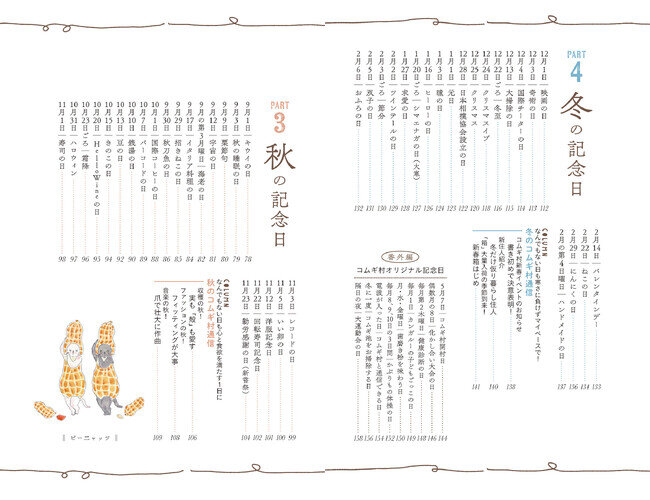 PART
3
秋の記念日
9月1日│キウイの日 78
9月3日│秋の睡眠の日 79
9月9日│栗節句
9月12日│宇宙の日
9月の第3月曜日│海老の日
9月17日│イタリア料理の日
9月29日│招きねこの日
9月29日│秋刀魚の日
10月1日│国際コーヒーの日
10月7日│バーコードの日
10月10日│銭湯の日
10月13日│豆の日
10月15日│きのこの日
10月20日│Hello Wineの日
10月23日ごろ│霜降
10月31日│ハロウィン 97
11月1日│寿司の日 98
11月3日│レコードの日 99
11月5日│いい卵の日 100
11月9日│洋服記念日 101
11月22日│回転寿司記念日 102
11月23日│勤労感謝の日(新嘗祭) 104
COLUMN
なんでもない日も心と食欲を満たす1日に
秋のコムギ村通信
収穫の秋!
実も「殻」も愛す 106
ファッションの秋!
フィッティングが大事 108
音楽の秋!
爪で壮大に作曲 109
ピーニャッツ
PART
4
冬の記念日
12月1日│映画の日 112
12月3日│奇術の日 113
12月4日│国際チーターの日 114
12月13日│大掃除の日 115
12月22日ごろ│冬至 116
12月24日│クリスマスイブ 117
12月25日│クリスマス 118
12月28日│日本相撲協会設立の日 120
1月1日│元日 122
1月3日│瞳の日 124
1月16日│ヒーローの日 126
1月20日ごろ│シマエナガの日(大寒) 124
1月27日│求愛の日 127
2月2日│ツインテールの日 128
2月3日ごろ│節分 129
2月5日│双子の日 131
2月6日│おふろの日 132
2月14日│バレンタインデー 133
2月22日│ねこの日 134
2月29日│にんにくの日 136
2月の第4日曜日│ハンドメイドの日 137
COLUMN
なんでもない日も寒さに負けずマイペースで!
冬のコムギ村通信
コムギ村新春イベントのお知らせ
書き初めで決意表明! 138
新住人紹介
冬だけ仮り暮らし住人 140
「箱」大量入荷の季節到来!
新春箱はじめ 141
番外編
コムギ村オリジナル記念日
5月7日│コムギ村開村日 144
偶数月の8日│化かし合い大会の日 146
毎月第3水曜日│健康診断の日 148
毎月1日│カンガルーの子どもごっこの日 149
月・水・金曜日│歯磨き粉を味わう日 150
毎月8、9、10日の3日間│かぶりもの体操の日 152
電波が入った日│コムギ村と通信できる日 154
冬に一度│コムギ池をお掃除する日 156
隔日の夜│大運動会の日 158